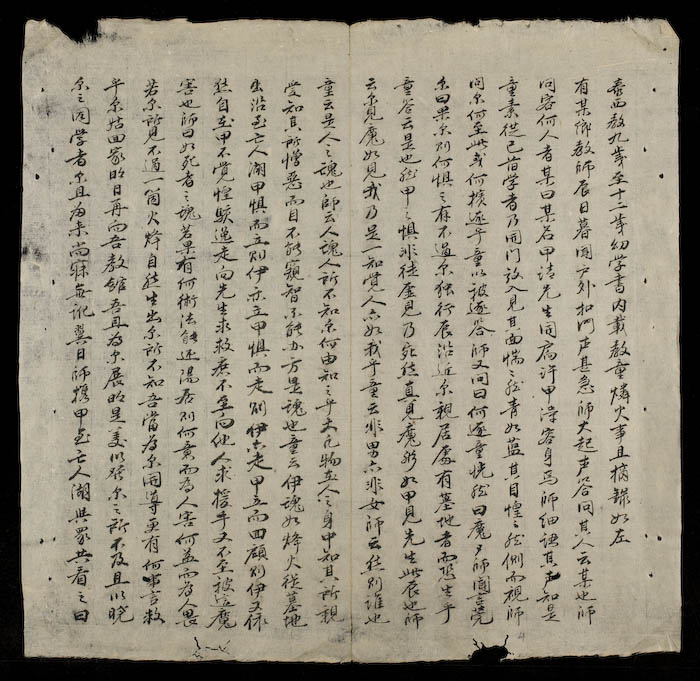 泰西教九歲至十二歲幼學書內載教童燐火事且摘辭如左
有某鄉教師辰日暮閉戶外扣門声甚急師大起声答問其人云某也師
問客何人者某曰某名甲請先生開扃許甲淂容身焉師細認其声知是
童素從己宿学者乃開門放入見其面惴之然青如藍其目惶之然側而視師
問尔何至此或何擯逐乎童以被逐答師又問曰何逐童恍然曰魔々師聞言莞
尔曰果尔則何惧之有不過尔独行辰沿近尔親居處有墓地者而恐生乎
童答云是也然甲之惧非徒虛見乃宛然真見魔形如甲見先生此辰也師
云尔見魔如見我乃是一知覺人亦如我乎童云非男亦非女師云然則誰也
童云是人之魂也師云人魂人所不知尔何由知之乎夫凡物在人之身中知其所親
愛知其所憎惡而目不能窺智不能办方是魂也童云伊魂如烽火從墓地
出沿至亡人湖甲惧而立則伊亦立甲惧而走則伊亦走甲立而回顧則伊又係
然自至甲不覺惶駭遄走向先生求救庶不至向他人求援乎又不至被這魔
害也師曰如死者之魂若果有何術法能还陽居則何竟而為人害何益而為人畏
若尔所見不過一箇火烽自然生出尔所不知吾當為尔開導更有何事言救
乎尔姑回家明日再而吾教館吾且為尔展明是美以發尔之所不及且以曉
尔之同学者尔且為未尚寐無訛翼日師携甲至亡人湖與眾共看之曰